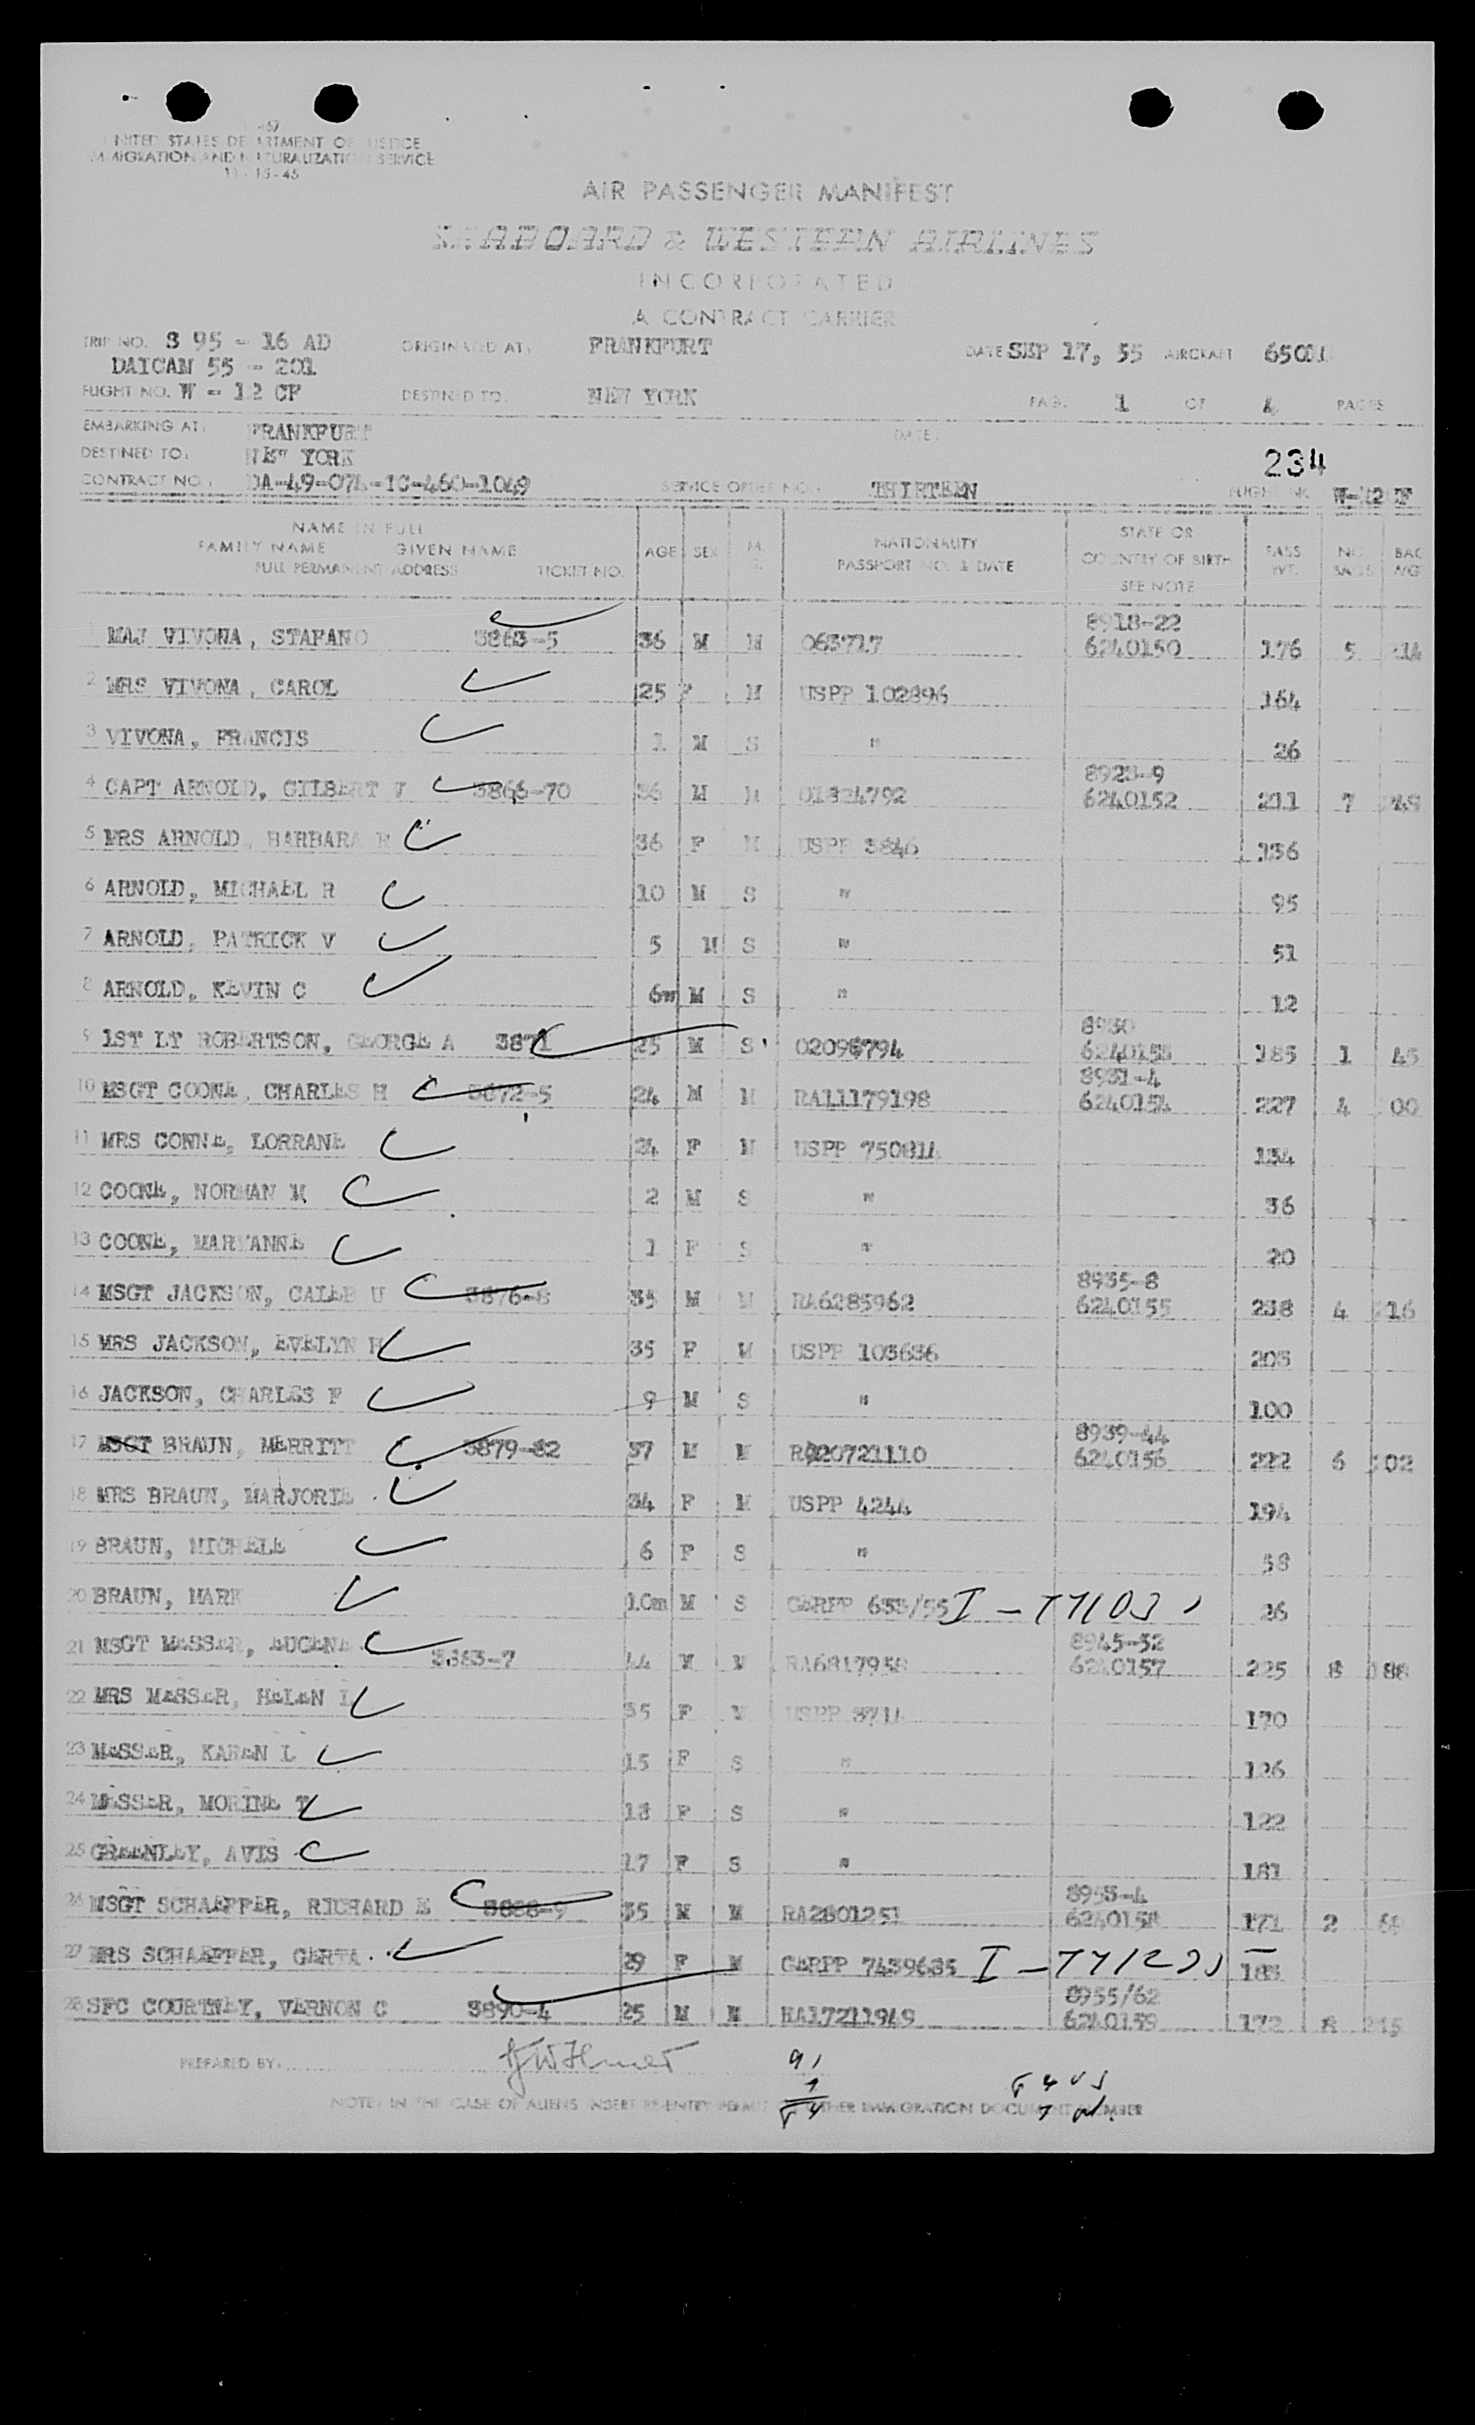 UNITED STATES DEPARTMENT OF JUSTICE
IMMIGRATION AND NATURALIZATION SERVICE
11-15-45
AIR PASSENGER MANIFEST
SEABOARD & WESTERN AIRLINES
INCORPORATED
A CONTRACT CARRIER
TRIP NO. S 95 - 16 AD ORIGINATED AT: FRANKFURT DATE SEP 17, 55 AIRCRAFT
DAICAN 55 - 201
FLIGHT NO. W - 12 CF DESTINED TO: NEW YORK PAGE 1 OF 4 PAGES
EMBARKING AT: FRANKFURT DATE:
DESTINED TO: NEW YORK 234
CONTRACT NO.: DA-49-07-TC-460-1049 SERVICE ORDER NO.: THIRTEEN FLIGHT NO. W-12 CF
NAME IN FULL
FAMILY NAME GIVEN NAME
FULL PERMANENT ADDRESS TICKET NO. AGE SEX M. S. NATIONALITY PASSPORT NO. & DATE STATE OR COUNTRY OF BIRTH SEE NOTE PASS WT. NO. BAGS BAG WGT
8918-22
1 MAJ VIVONA, STAFANO 3863-5 36 M M 063717 6240150 176 5
2 MRS VIVONA, CAROL 25 F M USPP 102896 164
3 VIVONA, FRANCIS 1 M S " 26
8923-9
4 CAPT ARNOLD, GILBERT V 3866-70 36 M M 01824792 6240152 211 7
5 MRS ARNOLD, BARBARA R 36 F M USPP 3846 136
6 ARNOLD, MICHAEL R 10 M S " 95
7 ARNOLD, PATRICK V 5 M S " 51
8 ARNOLD, KEVIN C 6w M S " 12
8930
9 1ST LT ROBERTSON, GEORGE A 3871 25 M S 02095794 6240153 185 1 45
8931-4
10 MSGT COONE, CHARLES H 3872-5 24 M M RA11179198 6240154 227 4 00
11 MRS CONNE, LORRANE 24 F M USPP 750814 134
12 COONE, NORMAN M 2 M S " 36
13 COONE, MARYANNE 1 F S " 20
8935-8
14 MSGT JACKSON, CALEB U 3876-8 35 M M RA6285962 6240155 238 4 216
15 MRS JACKSON, EVELYN H 35 F M USPP 103636 205
16 JACKSON, CHARLES F 9 M S " 100
8939-44
17 MSGT BRAUN, MERRITT 3879-82 37 M M RA20721110 6240156 222 6 02
18 MRS BRAUN, MARJORIE 34 F M USPP 4244 194
19 BRAUN, MICHELE 6 F S " 58
20 BRAUN, MARK 10m M S GERPP 633/55 I - 26
8945-52
21 MSGT MESSER, EUGENE 3883-7 44 M M RA6817958 6240157 225 8 188
22 MRS MESSER, HELEN L 35 F M USPP 3714 170
23 MESSER, KAREN L 15 F S " 126
24 MESSER, MORINE T 13 F S " 122
25 GREENLEY, AVIS 17 F S " 181
8953-4
26 MSGT SCHAEFFER, RICHARD E 3888-9 35 M M RA2801251 6240158 171 2
27 MRS SCHAEFFER, GERTA 29 F M GERPP 7439635 I - 183
8955/62
28 SFC COURTNEY, VERNON C 3890-4 25 M M RA17211949 6240159 172 8 215
PREPARED BY:
NOTE: IN THE CASE OF ALIENS INSERT RE-ENTRY PERMIT OR OTHER IMMIGRATION DOCUMENT NUMBER